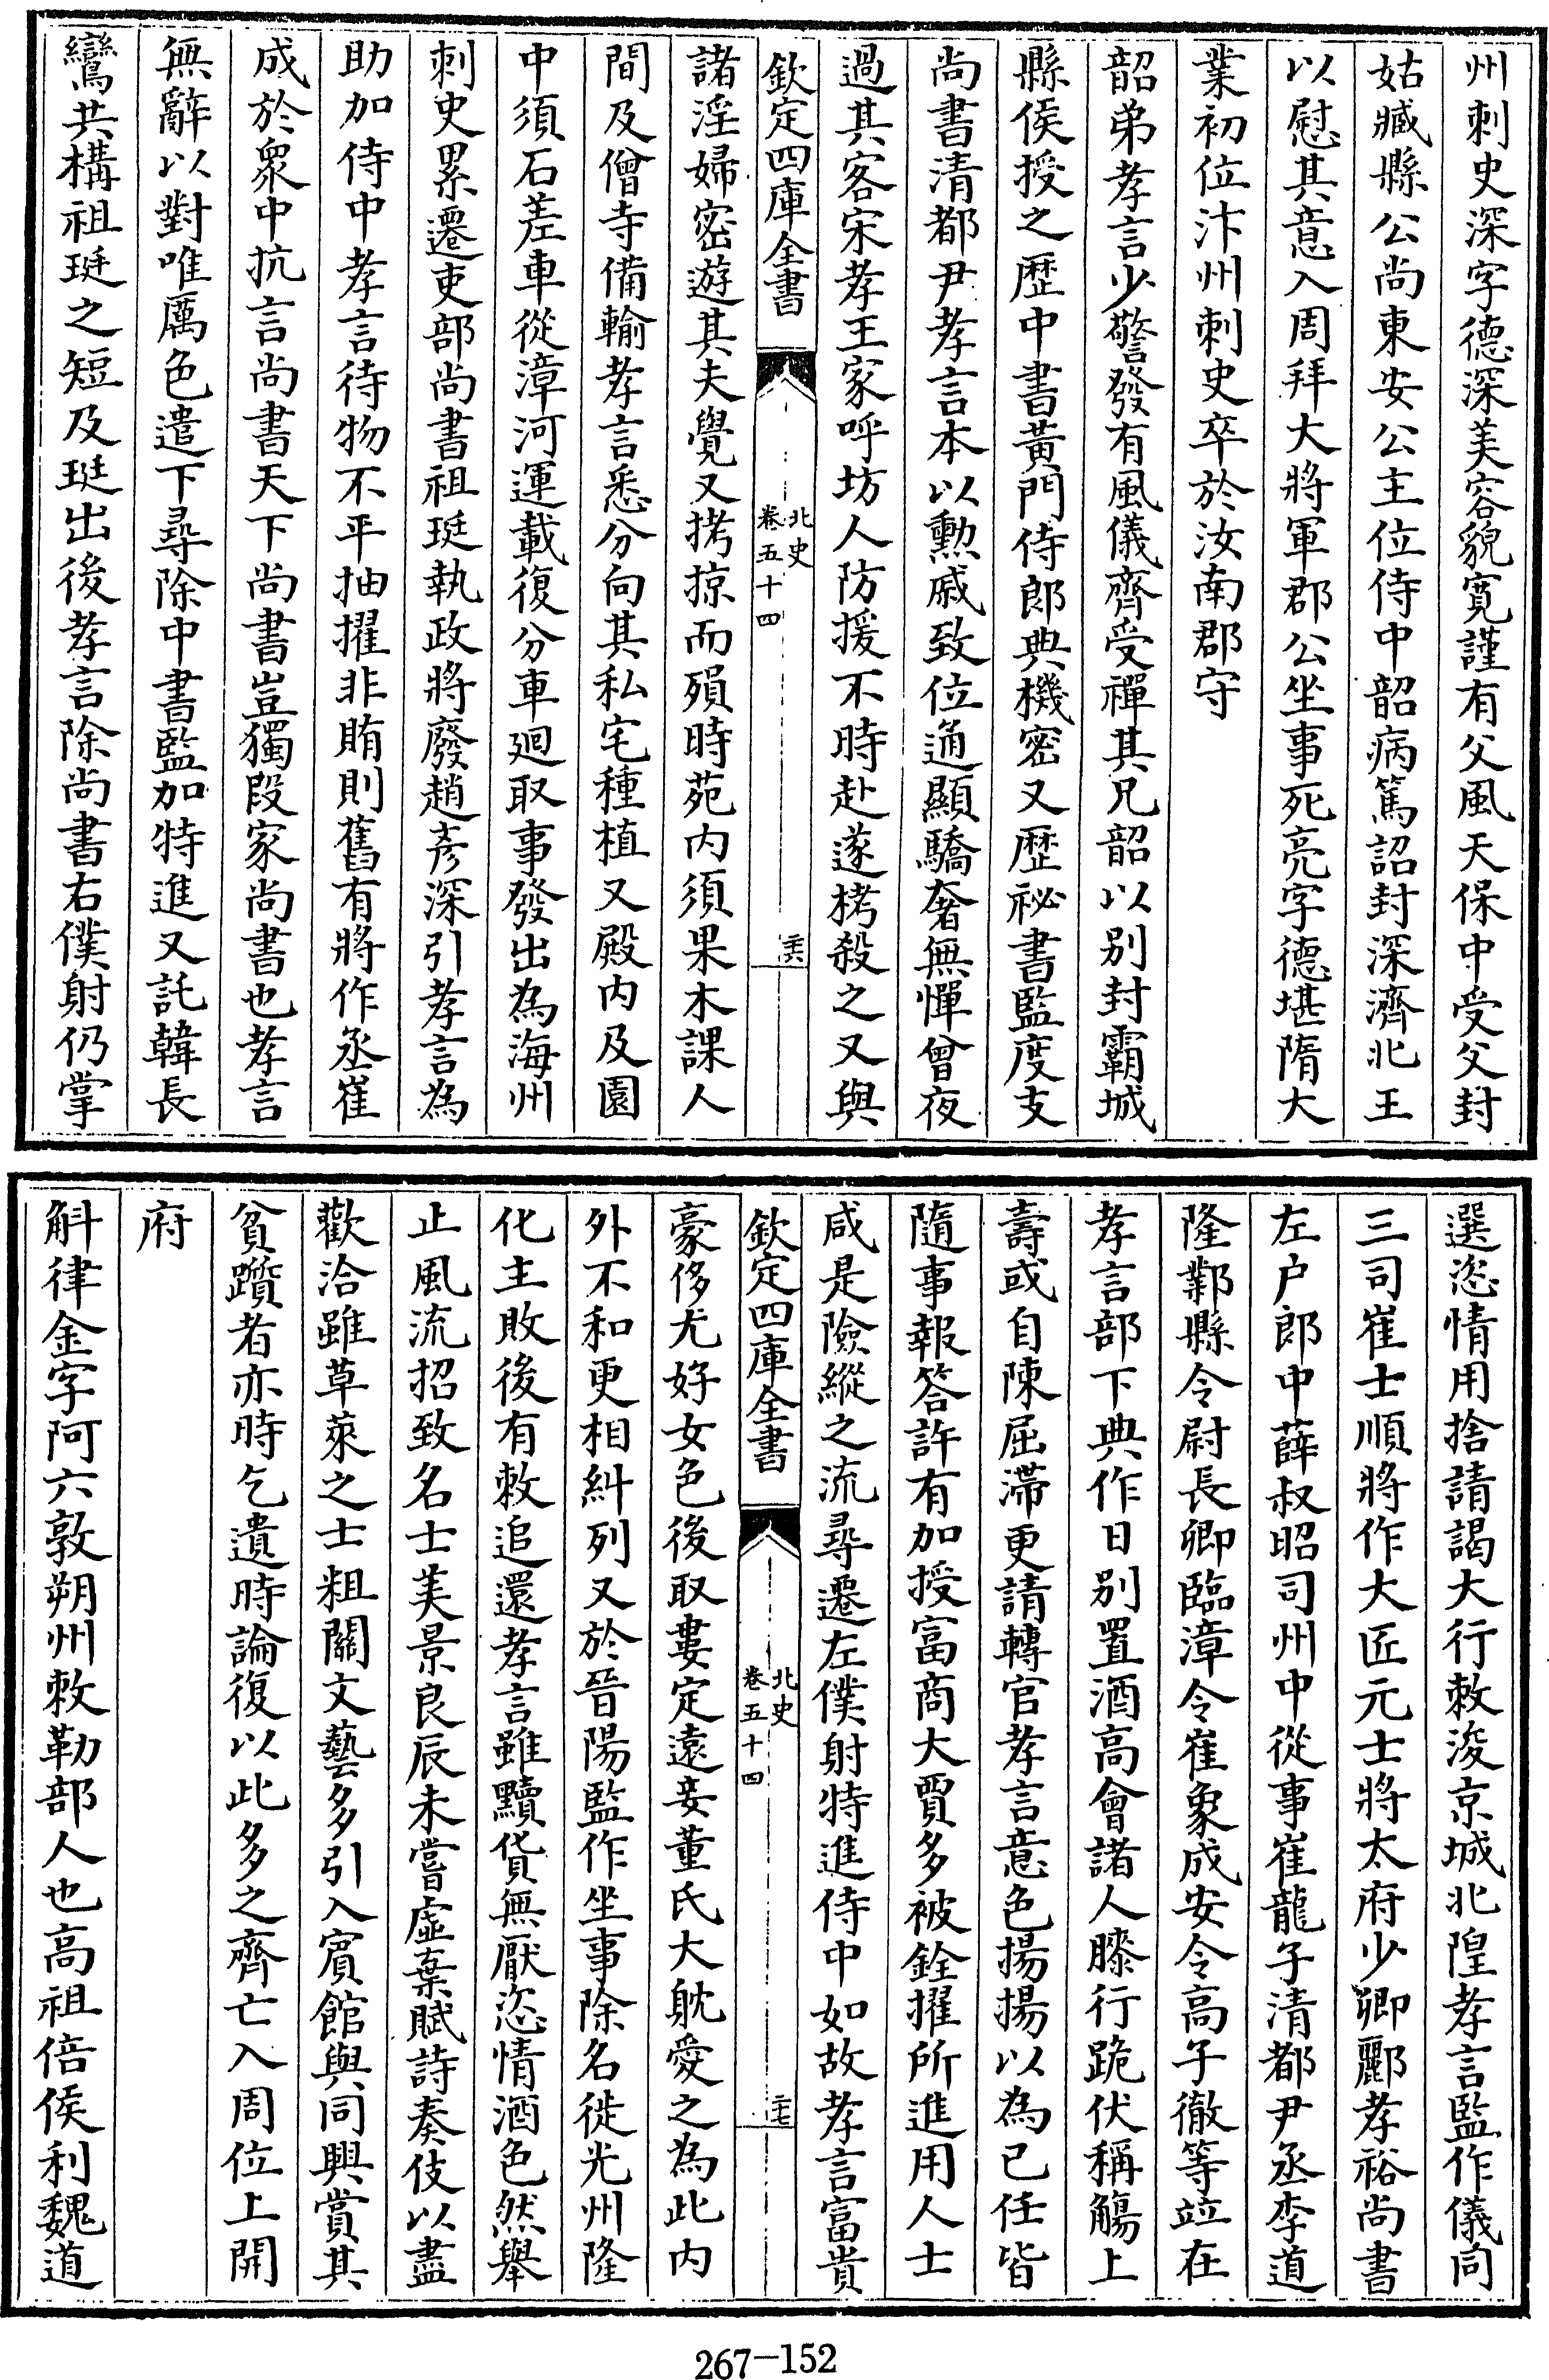 州刺史深字德深美容貌寛謹有父風天保中受父封
姑臧縣公尚東安公主位侍中韶病篤詔封深濟北王
以慰其意入周拜大將軍郡公坐事死亮字德堪隋大
業初位汴州刺史卒於汝南郡守
韶弟孝言少警發有風儀齊受禪其兄韶以别封霸城
縣侯授之歴中書黃門侍郎典機密又歴祕書監度支
尚書清都尹孝言本以勲戚致位通顯驕奢無憚曾夜
過其客宋孝王家呼坊人防援不時赴遂栲殺之又與
欽定四庫全書
北史
卷五十四
二十六
諸淫婦密遊其夫覺又拷掠而殞時苑内須果木課人
間及僧寺備輸孝言悉分向其私宅種植又殿内及園
中須石差車從漳河運載復分車廻取事發出為海州
刺史累遷吏部尚書祖珽執政將廢趙彦深引孝言為
助加侍中孝言待物不平抽擢非賄則舊有將作丞崔
成於衆中抗言尚書天下尚書豈獨段家尚書也孝言
無辭以對唯厲色遣下尋除中書監加特進又託韓長
鸞共構祖珽之短及珽出後孝言除尚書右僕射仍掌
選恣情用捨請謁大行敕浚京城北隍孝言監作儀同
三司崔士順將作大匠元士將太府少卿酈孝裕尚書
左户郎中薛叔昭司州中從事崔龍子清都尹丞李道
隆鄴縣令尉長卿臨漳令崔象成安令高子徹等竝在
孝言部下典作日别置酒高會諸人膝行跪伏稱觴上
壽或自陳屈滯更請轉官孝言意色揚揚以為已任皆
隨事報答許有加授富商大賈多被銓擢所進用人士
咸是險縱之流尋遷左僕射特進侍中如故孝言富貴
欽定四庫全書
北史
卷五十四
二十七
豪侈尤好女色後取婁定遠妾董氏大躭愛之為此内
外不和更相糾列又於晉陽監作坐事除名徙光州隆
化主敗後有敕追還孝言雖黷貨無厭恣情酒色然舉
止風流招致名士美景良辰未嘗虛棄賦詩奏伎以盡
歡洽雖草萊之士粗關文藝多引入賓館與同興賞其
貧躓者亦時乞遺時論復以此多之齊亡入周位上開
府
斛律金字阿六敦朔州敕勒部人也高祖倍侯利魏道
267-152